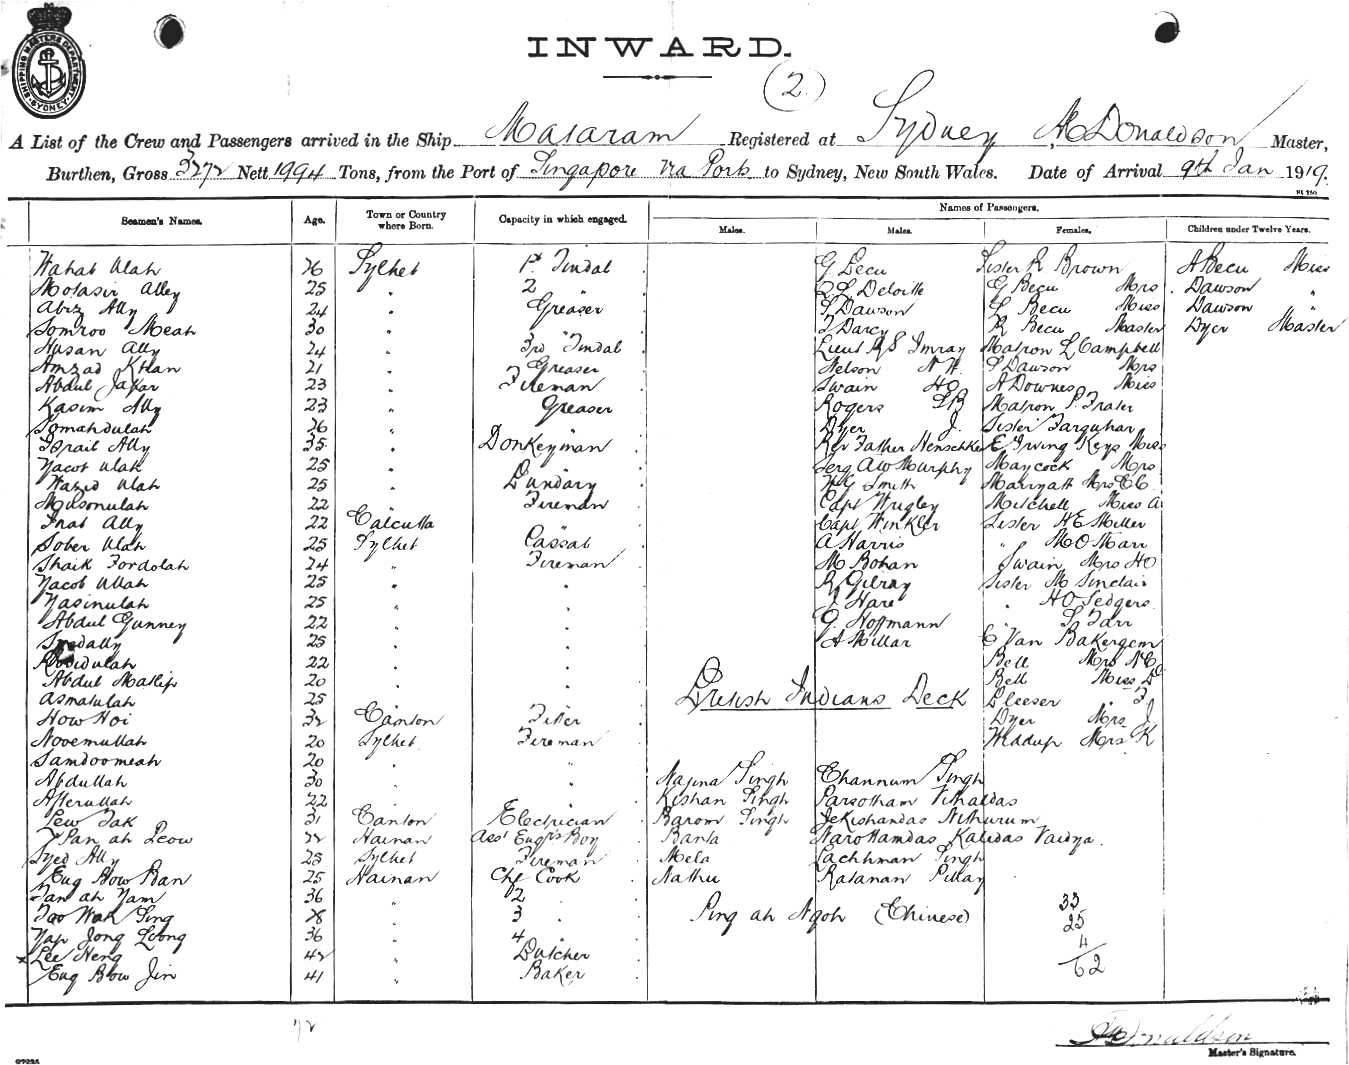 SHIPPING MASTERS DEPARTMENT SYDNEY
INWARD.
(2.)
A List of the Crew and Passengers arrived in the Ship Mataram Registered at Sydney, McDonaldson Master,
Burthen, Gross 3272 Nett 1994 Tons, from the Port of Singapore via Ports to Sydney, New South Wales. Date of Arrival 9th Jan 1919.
Seamen's Names. Age. Town or Country where Born. Capacity in which engaged. Names of Passengers.
Males. Males. Females. Children under Twelve Years.
Wahab Ulah 26 Sylhet 1st Tindal G Becu Sister R Brown A Becu Miss
Motasir Alley 25 " 2 " Q L Deloitte G Becu Mrs Dawson "
Abiz Ally 24 " Greaser S Dawson L Becu Miss Dawson "
Somroo Meah 30 " " J Darcy R Becu Master Dyer Master
Husan Ally 24 " 3rd Tindal Lieut R S Imray Matron L Campbell
Amzad Khan 21 " Greaser Nelson N W. S Dawson Mrs
Abdul Jafar 23 " Fireman Swain HO A Downes Miss
Kasim Ally 23 " Greaser Rogers LB Matron P. Frater
Somahdulah 26 " " Dyer J. Sister Farquhar
Israil Ally 35 " Donkeyman Rev Father Henschke E Irving Keys Miss
Yacob Ulah 25 " " Serg AW Murphy Maycock Mrs
Wazid Ulah 25 " Fireman W G Smith Marryatt Mrs E C
Musonulah 22 " Fireman Capt Wrigley Mitchell Miss A
Inat Ally 22 Calcutta " Capt Winkler Sister H E Miller
Sober Ulah 25 Sylhet Cassab A Harris " M O Marr
Shaik Fordolah 24 " Fireman M Bohan Swain Mrs HO
Yacob Ullah 25 " " R Gilray Sister M Sinclair
Yasinulah 25 " " J Hare " H O Sedgers
Abdul Gunney 22 " " G. Hofmann " S Farr
Syedally 25 " " A Millar C Van Bakergem
22 " " Bell Mrs N C
Abdul Matlip 20 " " Bell Miss D
Asmatulah 25 " " British Indians Deck Bleeser " F
How Hoi 32 Canton Fitter Dyer Mrs J
Novemullah 20 Sylhet Fireman Widdup Mrs K
Samdoomeah 20 " "
Abdullah 30 " " Najina Singh Channum Singh
Afterullah 22 " " Kishan Singh Parsotham Vithaldas
Lew Tak 31 Canton Electrician Barom Singh Jekishandas Nithurum
Pan ah Leow 22 Hainan Asst Engrs Boy Banta Narottamdas Kalidas Vaidya.
Syed Ally 25 Sylhet Fireman Mela Lachhman Singh
Eug Bow Ban 25 Hainan Chf Cook Nathu Ratanan Pillay
Tan ah Nam 36 " 2 " 33
Too Wah Sing 28 " 3 " Ping ah Ngoh (Chinese) 25
Yap Jong Loong 36 " 4 " 4
Lee Heng 42 " Butcher 62
Eug Bow Jin 41 " Baker
72
McDonaldson
Master's Signature.